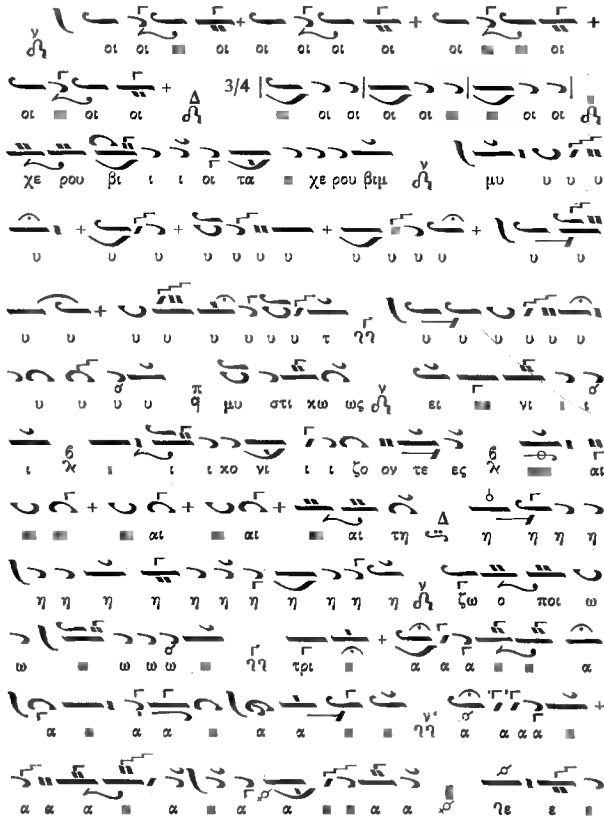 ν οι οι οι οι οι οι οι οι οι οι
οι οι οι Δ 3/4 οι οι οι οι οι οι
χε ρου βι ι ι οι τα χε ρου βιμ ν μυ υ υ υ
υ υ υ υ υ υ υ υ υ υ υ
υ υ υ υ υ υ υ υ τ Γ υ υ υ υ υ υ
υ υ υ υ π μυ στι κω ως ν ει νι ι ι
ι ι ι ι κο νι ι ι ζο ον τε ες αι
αι αι αι τη Δ η η η η
η η η η η η η η η η η ν ζω ο ποι ω
ω ω ω ω τρι α α α α
α α α α α ν' α α α
α α α α α α α α γε ε